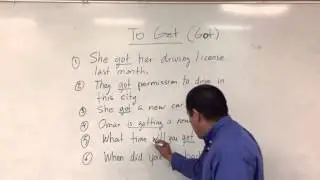 To Get (Got)
① She got her driving license
last month.
② They got permission to drive in
this city
③ She got a new car
④ Omar is getting a new
⑤ What time will you get
⑥ When did you